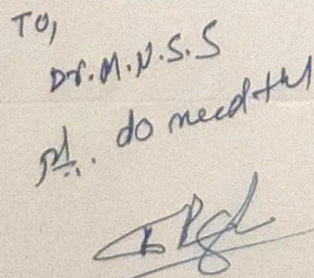 To,
Dr. M.N.S.S
pl. do needful